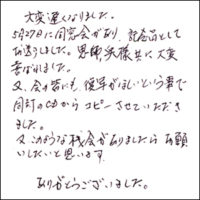 大変遅くなりました。
5月27日に同窓会があり、記念品として
お送りしました。恩師共様共に大変
喜ばれました。
又、会員皆にも、後半がほしいという事で
同封のCDからコピーさせていただき
ました。
又このような機会がありましたらお願
いしたいと思います。
ありがとうございました。